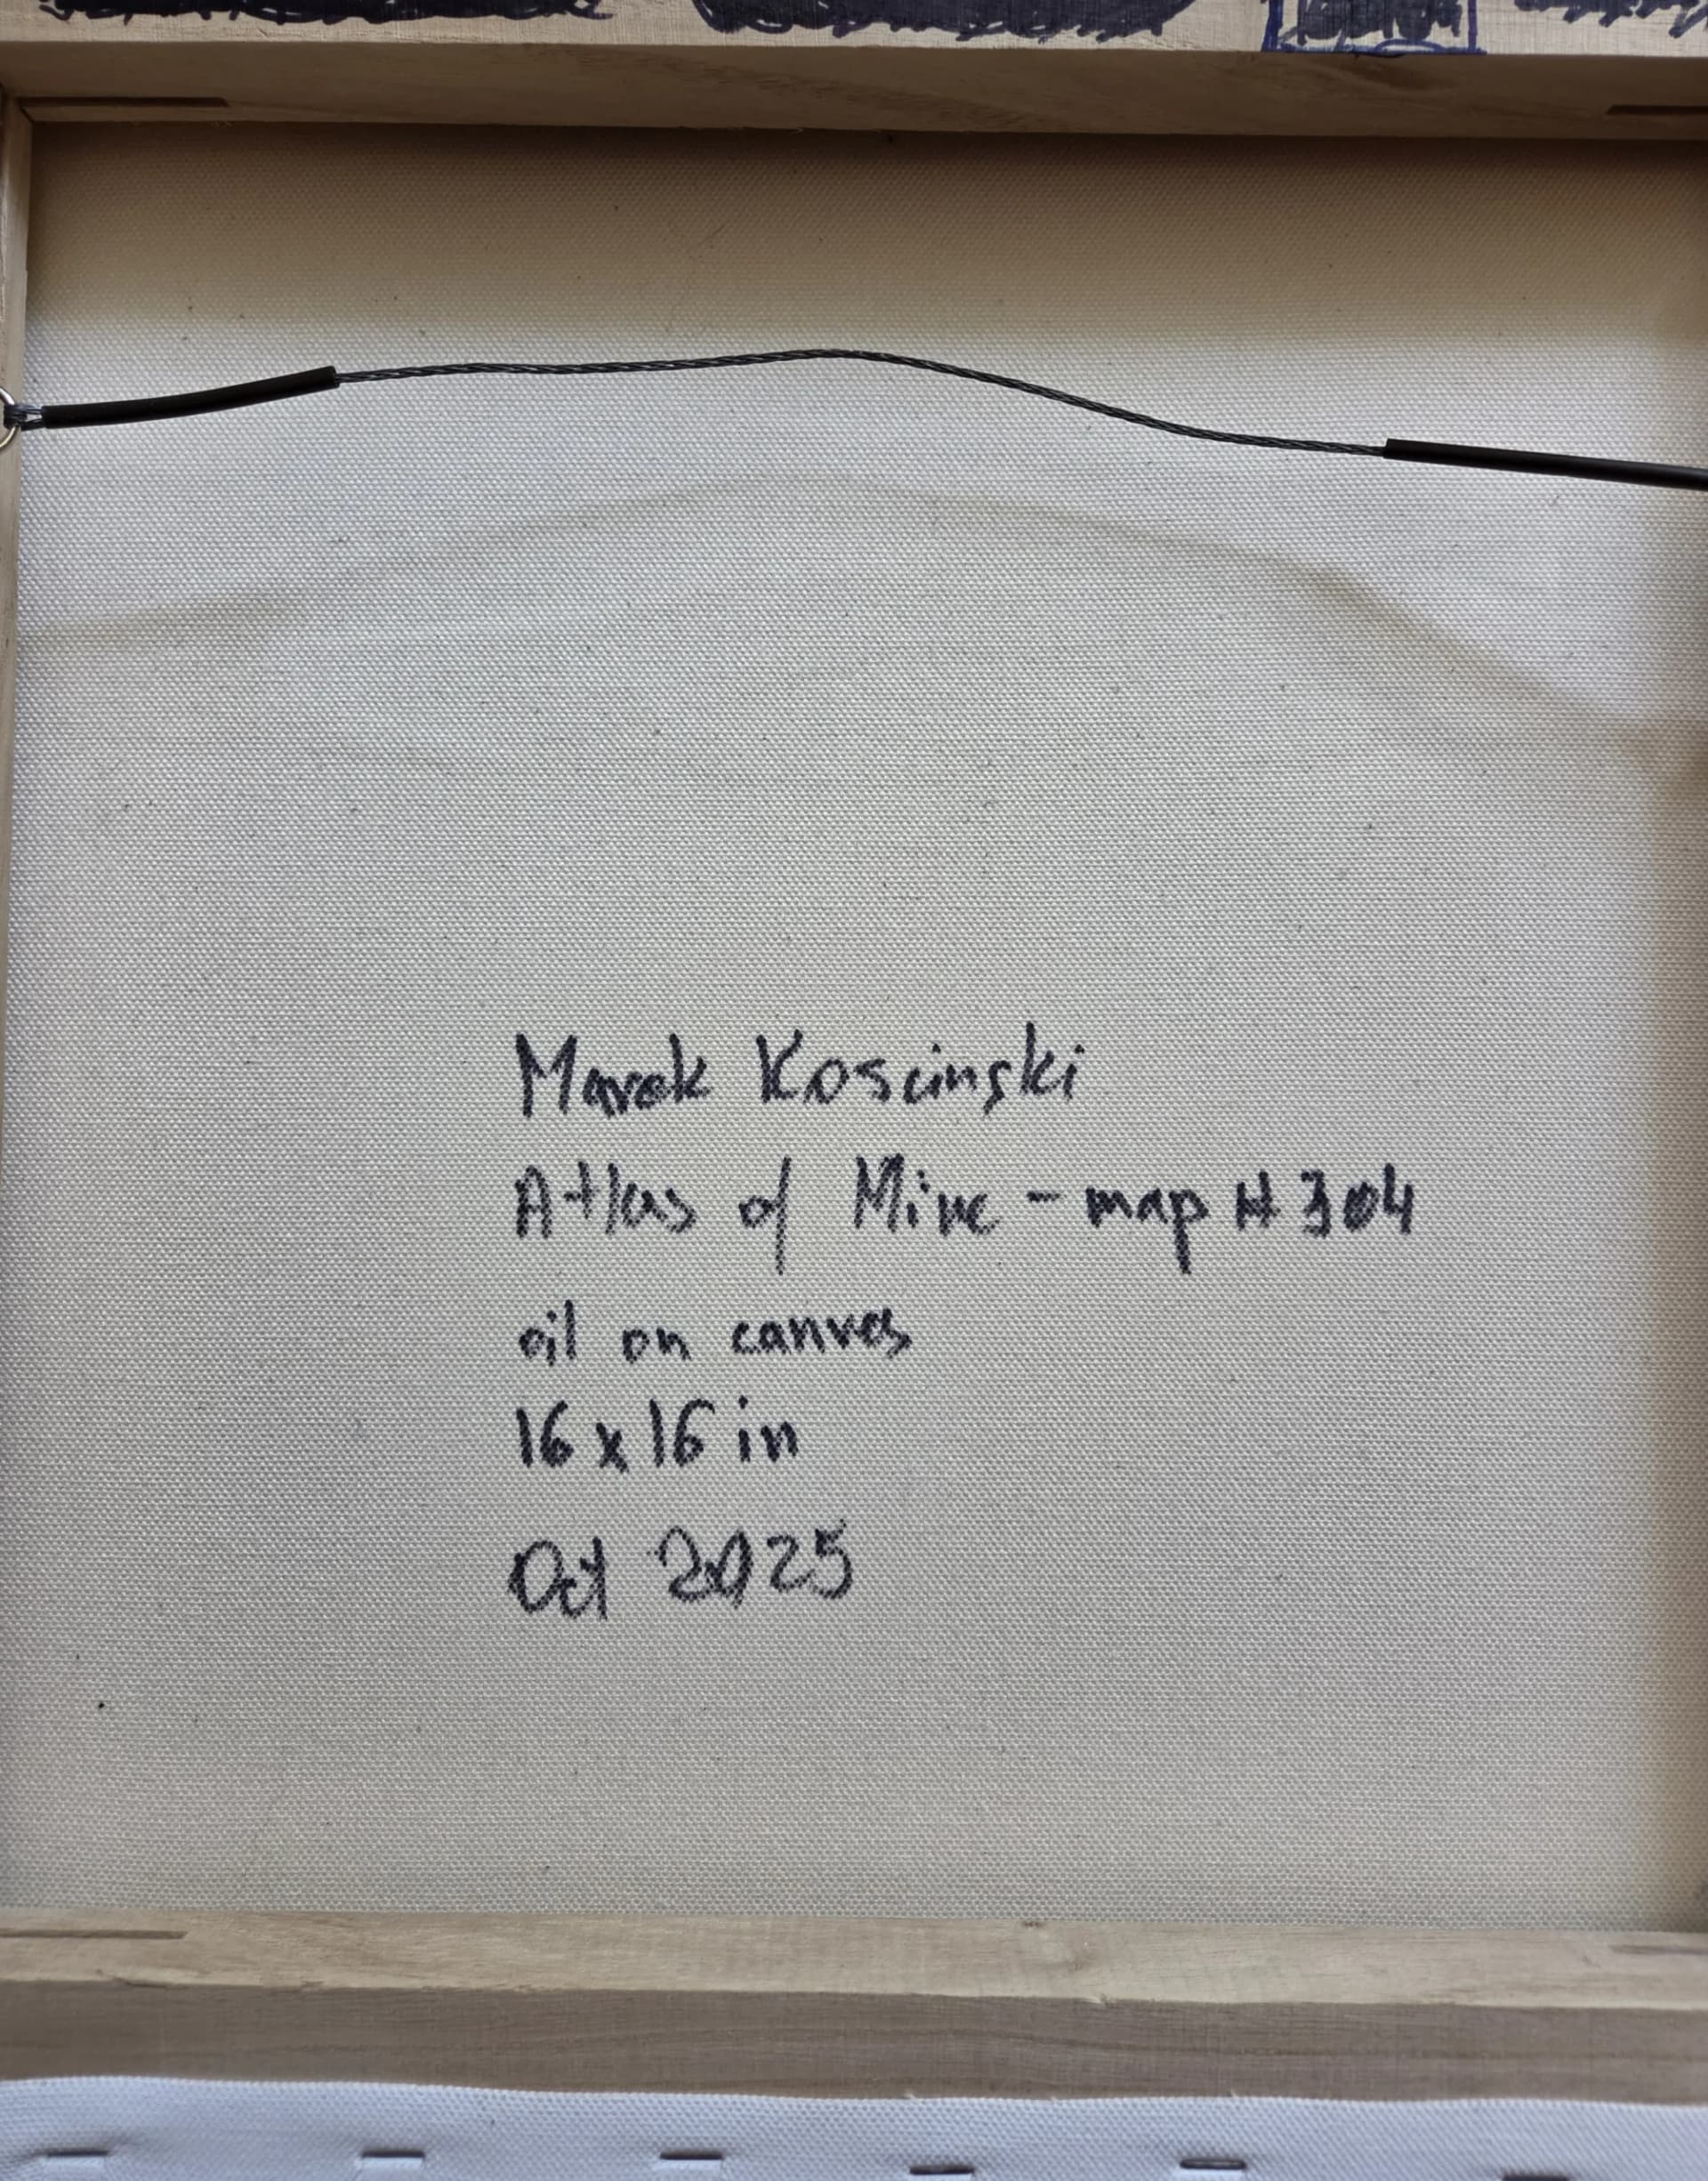 Marek Koscinski
Atlas of Mine - map # 304
oil on canvas
16 x 16 in
Oct 2025